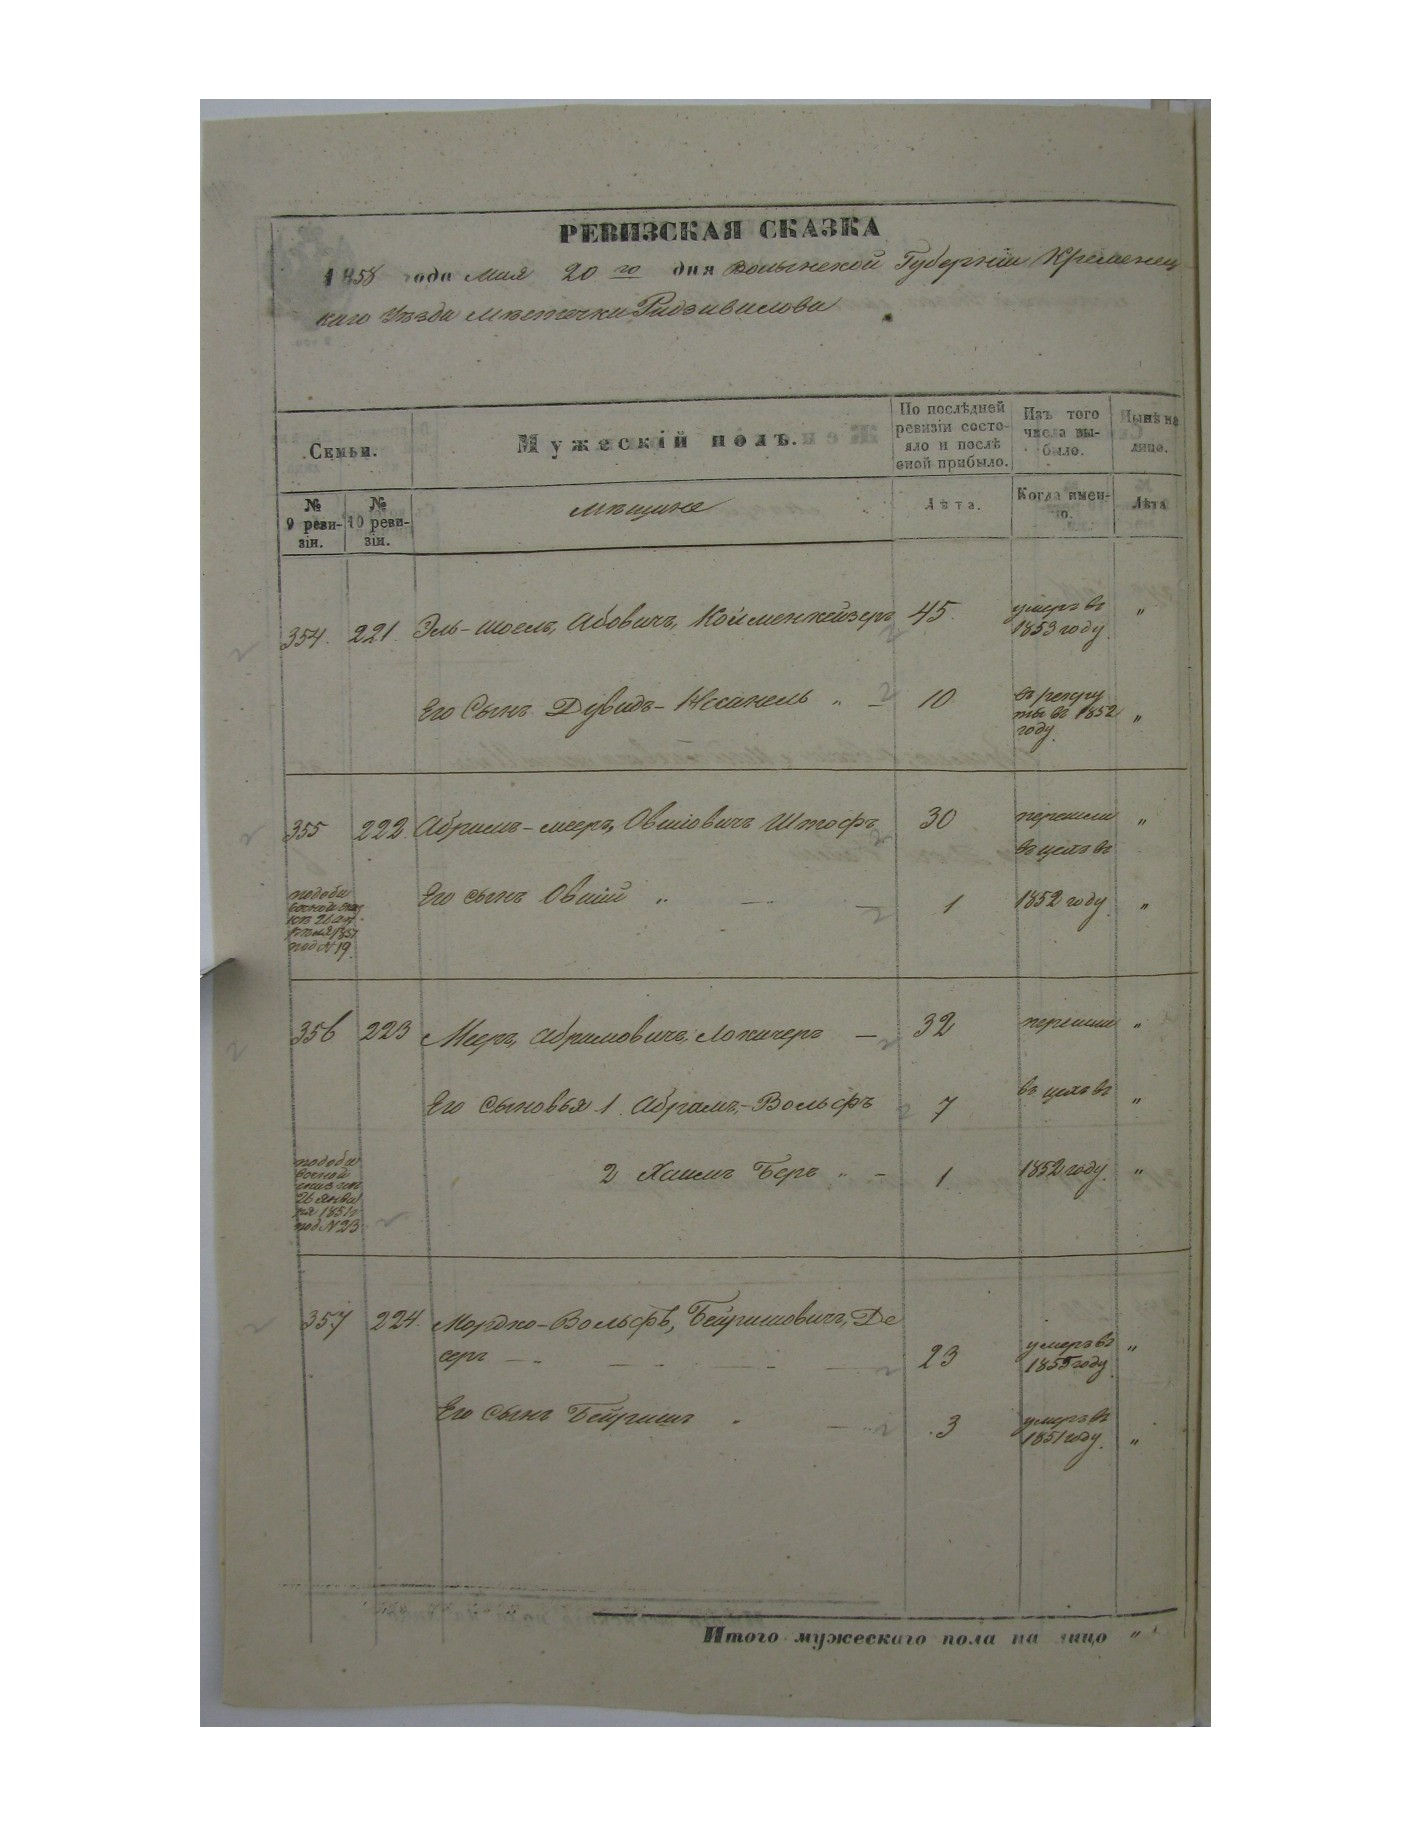 РЕВИЗСКАЯ СКАЗКА
1858 года Мая 20го дня Волынской Губернiи Кременец
каго Уѣзда мѣстечка Радзивилова
Семьи.
Мужескiй полъ.
По послѣдней ревизiи состо-
яло и послѣ
оной прибыло.
Изъ того
числа вы-
было.
Нынѣ на
лицо.
№
9 реви-
зiи.
№
10 реви-
зiи.
мѣщане
Лѣта.
Когда имен-
но.
Лѣта
354. 221. Эль-Шоель, Абовичъ, 45. умеръ въ "
1853 году
Его Сынъ Дувидъ- " - 10 въ рекру
ты въ 1852 "
году
355 222. Абрамъ-меер, Овшiовичъ Штофъ 30 перешли "
въ цехъ въ
Его сынъ Овшiй " — — 1 1852 году "
под № 19.
356 223 Меер, Абрамовичъ, — 32 перешли "
Его сыновья 1. Абрамъ-Вольфъ 7 въ цехъ въ "
2 Хаимъ Беръ " - 1 1852 году. "
26 Янва
ря 1851 г
под № 23
357 224. Мордко-Вольфъ, Бейришовичъ, Де
серъ — " — " — " — 23 умеръ въ "
1855 году
Его сынъ Бейришъ " — 3 умеръ въ
1851 году. "
Итого мужескаго пола на лицо "